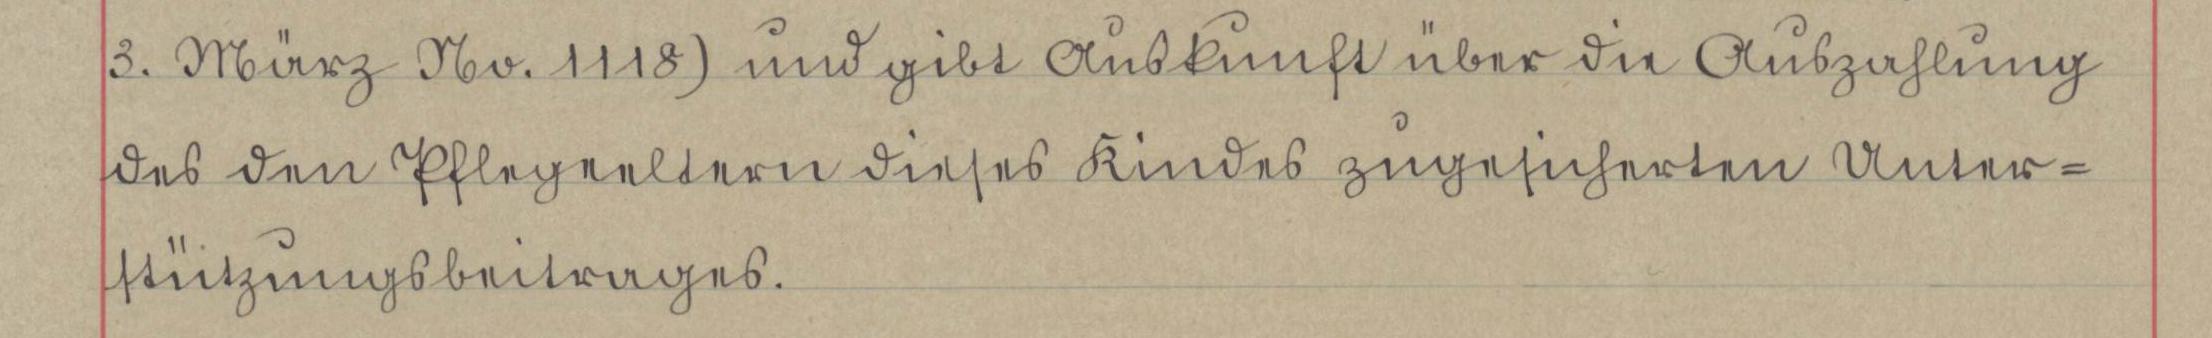 3. März No. 1118) und gibt Auskunft über die Auszahlung
des den Pflegeeltern dieses Kindes zugesicherten Unter=
stützungsbeitrages.